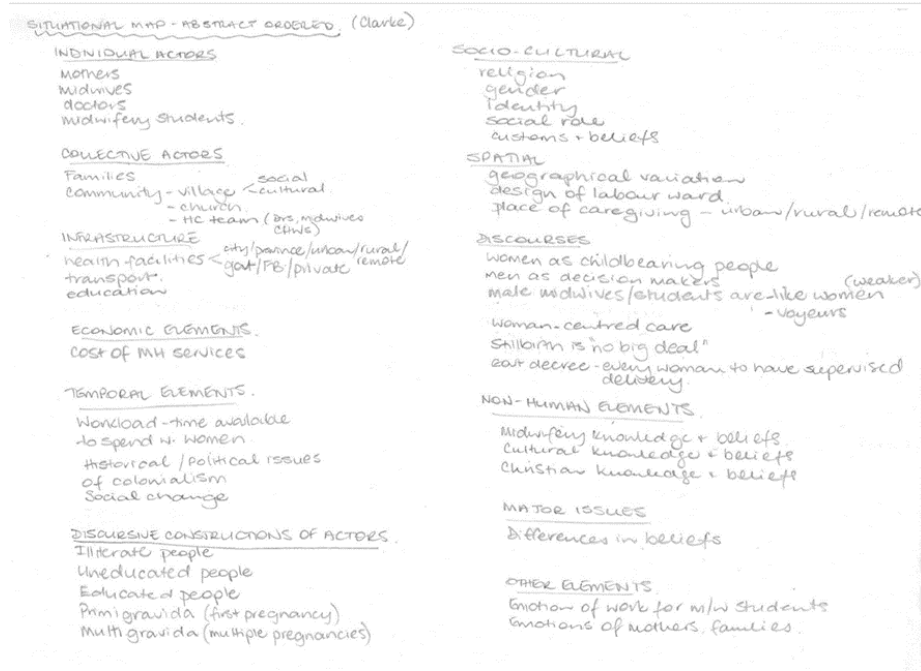 SITUATIONAL MAP - ABSTRACT ORDERED. (Clarke)
INDIVIDUAL ACTORS
Mothers
Midwives
doctors
midwifery students.
COLLECTIVE ACTORS
Families
social
community - village < cultural
- church
- HC team (Drs, midwives
CHWs)
INFRASTRUCTURE
health facilities < city/province/urban/rural/
remote
govt/FB/private
transport.
education
ECONOMIC ELEMENTS.
COST OF MH SERVICES
TEMPORAL ELEMENTS.
Workload - time available
to spend w. women
Historical / Political issues
of colonialism
Social change
DISCURSIVE CONSTRUCTIONS OF ACTORS.
Illiterate people
Uneducated people
Educated people
Primigravida (first pregnancy)
Multigravida (multiple pregnancies)
SOCIO-CULTURAL
religion
gender
identity
social role
customs + beliefs
SPATIAL
geographical variation
design of labour ward.
place of caregiving - urban/rural/remote
DISCOURSES
women as childbearing people
men as decision makers
(weaker)
male midwives/students are - like women
- voyeurs
woman-centred care
Stillbirth is "no big deal"
decree - every woman to have supervised
delivery.
NON-HUMAN ELEMENTS.
Midwifery knowledge + beliefs
Cultural knowledge + beliefs
Christian knowledge + beliefs
MAJOR ISSUES
Differences in beliefs
OTHER ELEMENTS.
Emotion of work for m/w students
Emotions of mothers, families.